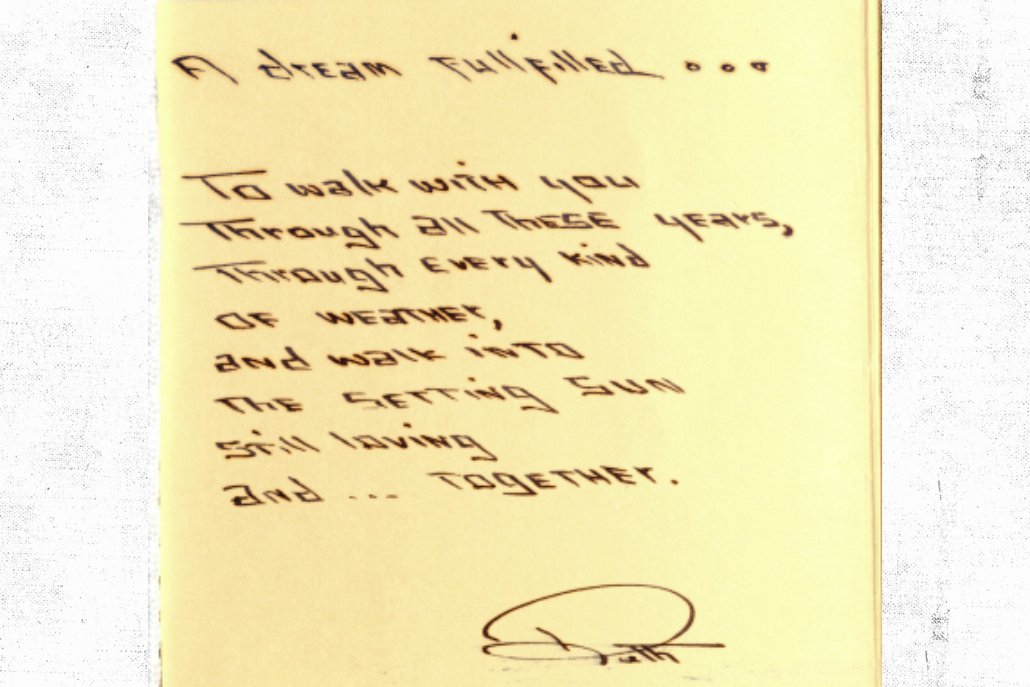 A dream fullfilled ...
To walk with you
Through all these years,
Through every kind
of weather,
and walk into
the setting sun
still loving
and ... together.
Ruth